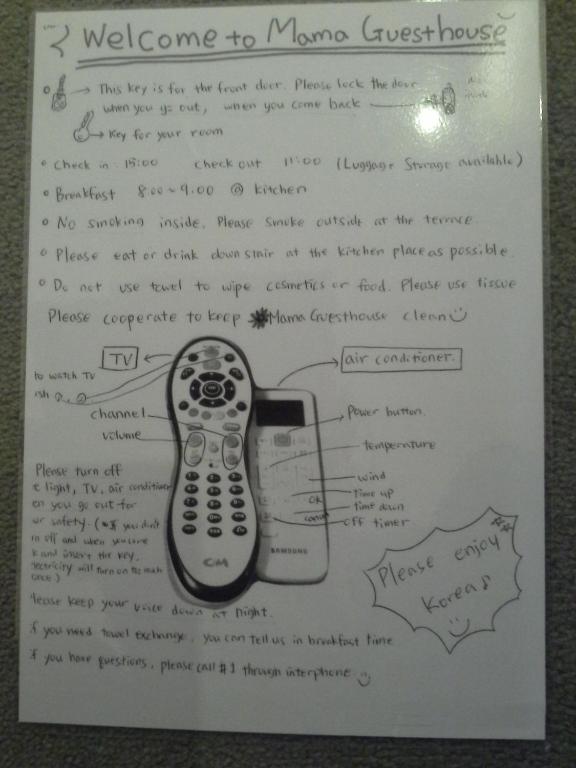 Welcome to Mama Guesthouse
This key is for the front door. Please lock the door
when you go out, when you come back
Key for your room
Check in : 15:00 check out 11:00 (Luggage Storage available)
Breakfast 8:00~9:00 @ kitchen
No smoking inside. Please smoke outside at the terrace.
Please eat or drink downstair at the kitchen place as possible.
Do not use towel to wipe cosmetics or food. Please use tissue
Please cooperate to keep Mama Guesthouse clean
TV
air conditioner.
to watch TV
channel
volume
Power button.
temperature
wind
OK
Time up
Time down
cancel
off timer
SAMSUNG
Please turn off
light, TV, air conditioner
en you go out for
ur safety. (*If you don't
n off and when you come
k and insert the key,
lectricity will turn on
once)
Please enjoy
Korea♪
Please keep your voice down at night.
if you need towel exchange, you can tell us in breakfast time
if you have questions, please call #1 through interphone.